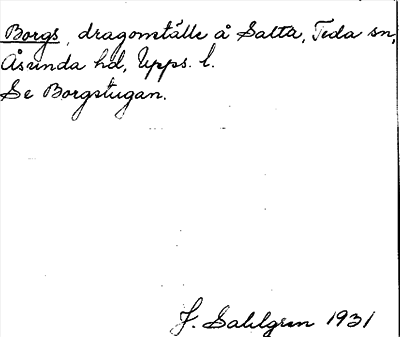 Borgs, dragonställe å Salta, Teda sn,
Åsunda hd, Upps. l.
Se Borgstugan.
J. Sahlgren 1931